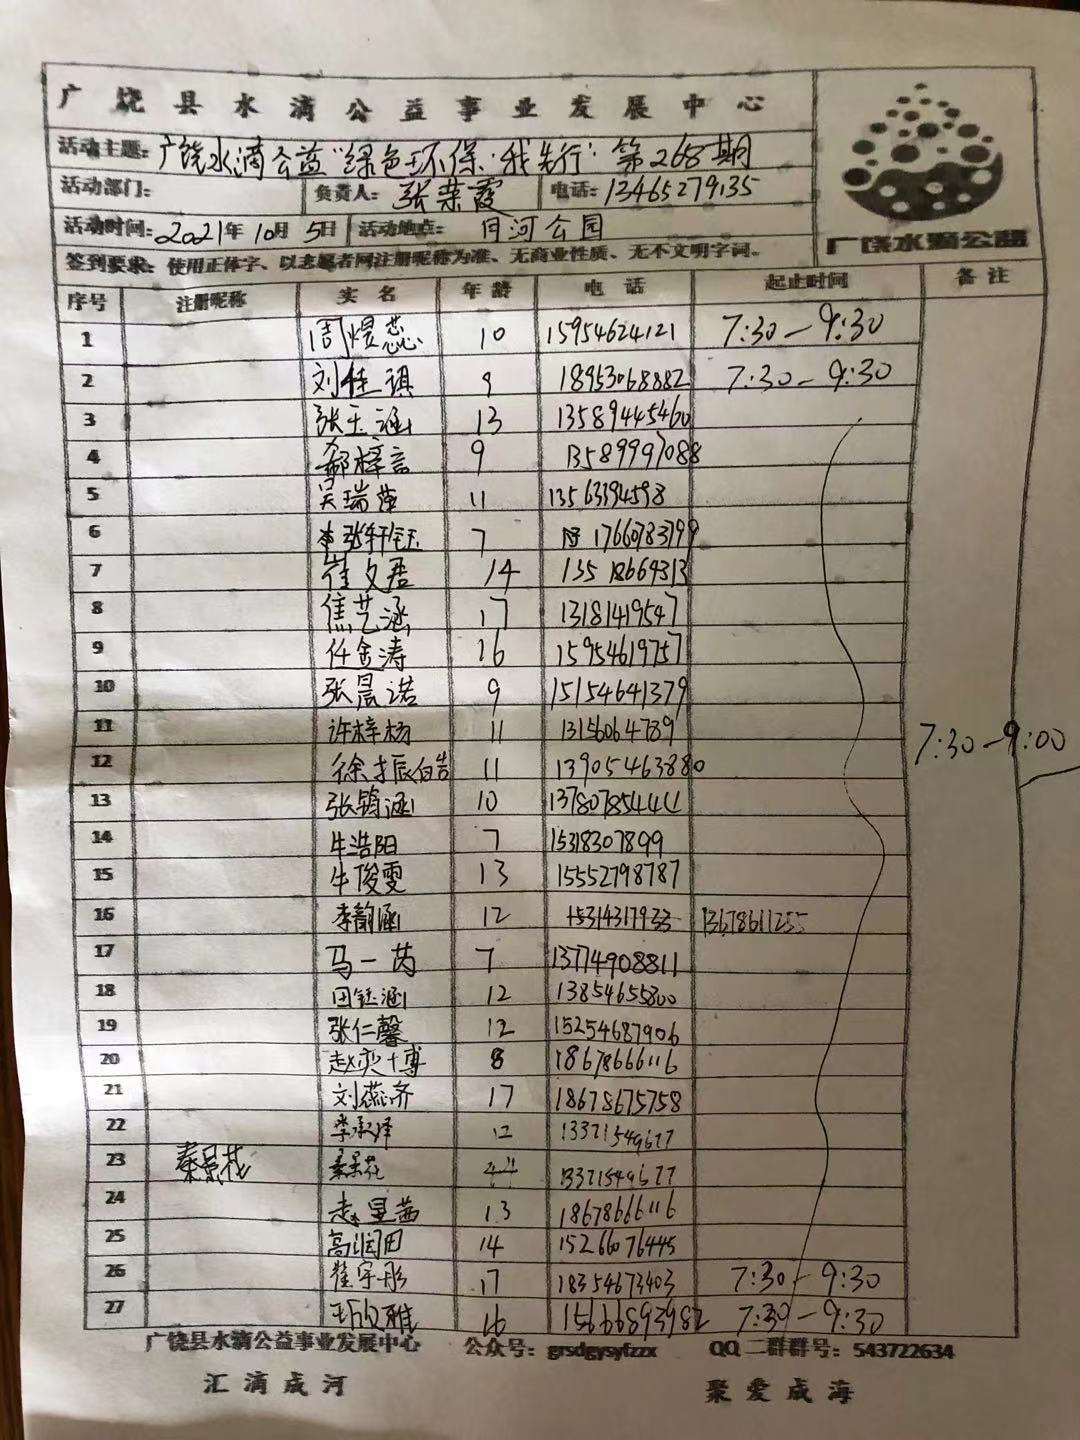 广饶县水滴公益事业发展中心
活动主题：广饶水滴公益"绿色环保,我先行"第268期
活动部门： 负责人：张荣霞 电话：13465279135
活动时间：2021年10月5日 活动地点： 月河公园
广饶水滴公益
签到要求：使用正体字、以志愿者网注册昵称为准、无商业性质、无不文明字词。
序号 注册昵称 实名 年龄 电话 起止时间 备注
1 周煜蕊 10 15954624121 7:30-9:30
2 刘佳琪 9 18953068882 7:30-9:30
3 张玉涵 13 13589445460
4 郝梓言 9 13589997088
5 吴瑞萍 11 13563194598
6 张轩钰 7 17660783799
7 崔文君 14 13518669313
8 焦艺涵 17 13181419547
9 任金涛 16 15954619757
10 张晨诺 9 15154641379
11 许梓杨 11 13156064789 7:30-9:00
12 徐振皓 11 13905463880
13 张锦涵 10 13780785441
14 牛浩阳 7 15318307899
15 牛俊雯 13 15552798787
16 李韵涵 12 15314317933 13678611255
17 马一芮 7 13774908811
18 田钰涵 12 13854655800
19 张仁馨 12 15254687906
20 赵奕博 8 18678666116
21 刘蕊齐 17 18678675758
22 李承泽 12 13371549677
23 秦景花 秦景花 44 13371549677
24 赵星茜 13 18678666116
25 高润田 14 15266076445
26 崔宇彤 17 18354673403 7:30-9:30
27 王欣雅 16 15666893982 7:30-9:30
广饶县水滴公益事业发展中心 公众号：grsdgysyfzzx QQ二群群号：543722634
汇滴成河 聚爱成海